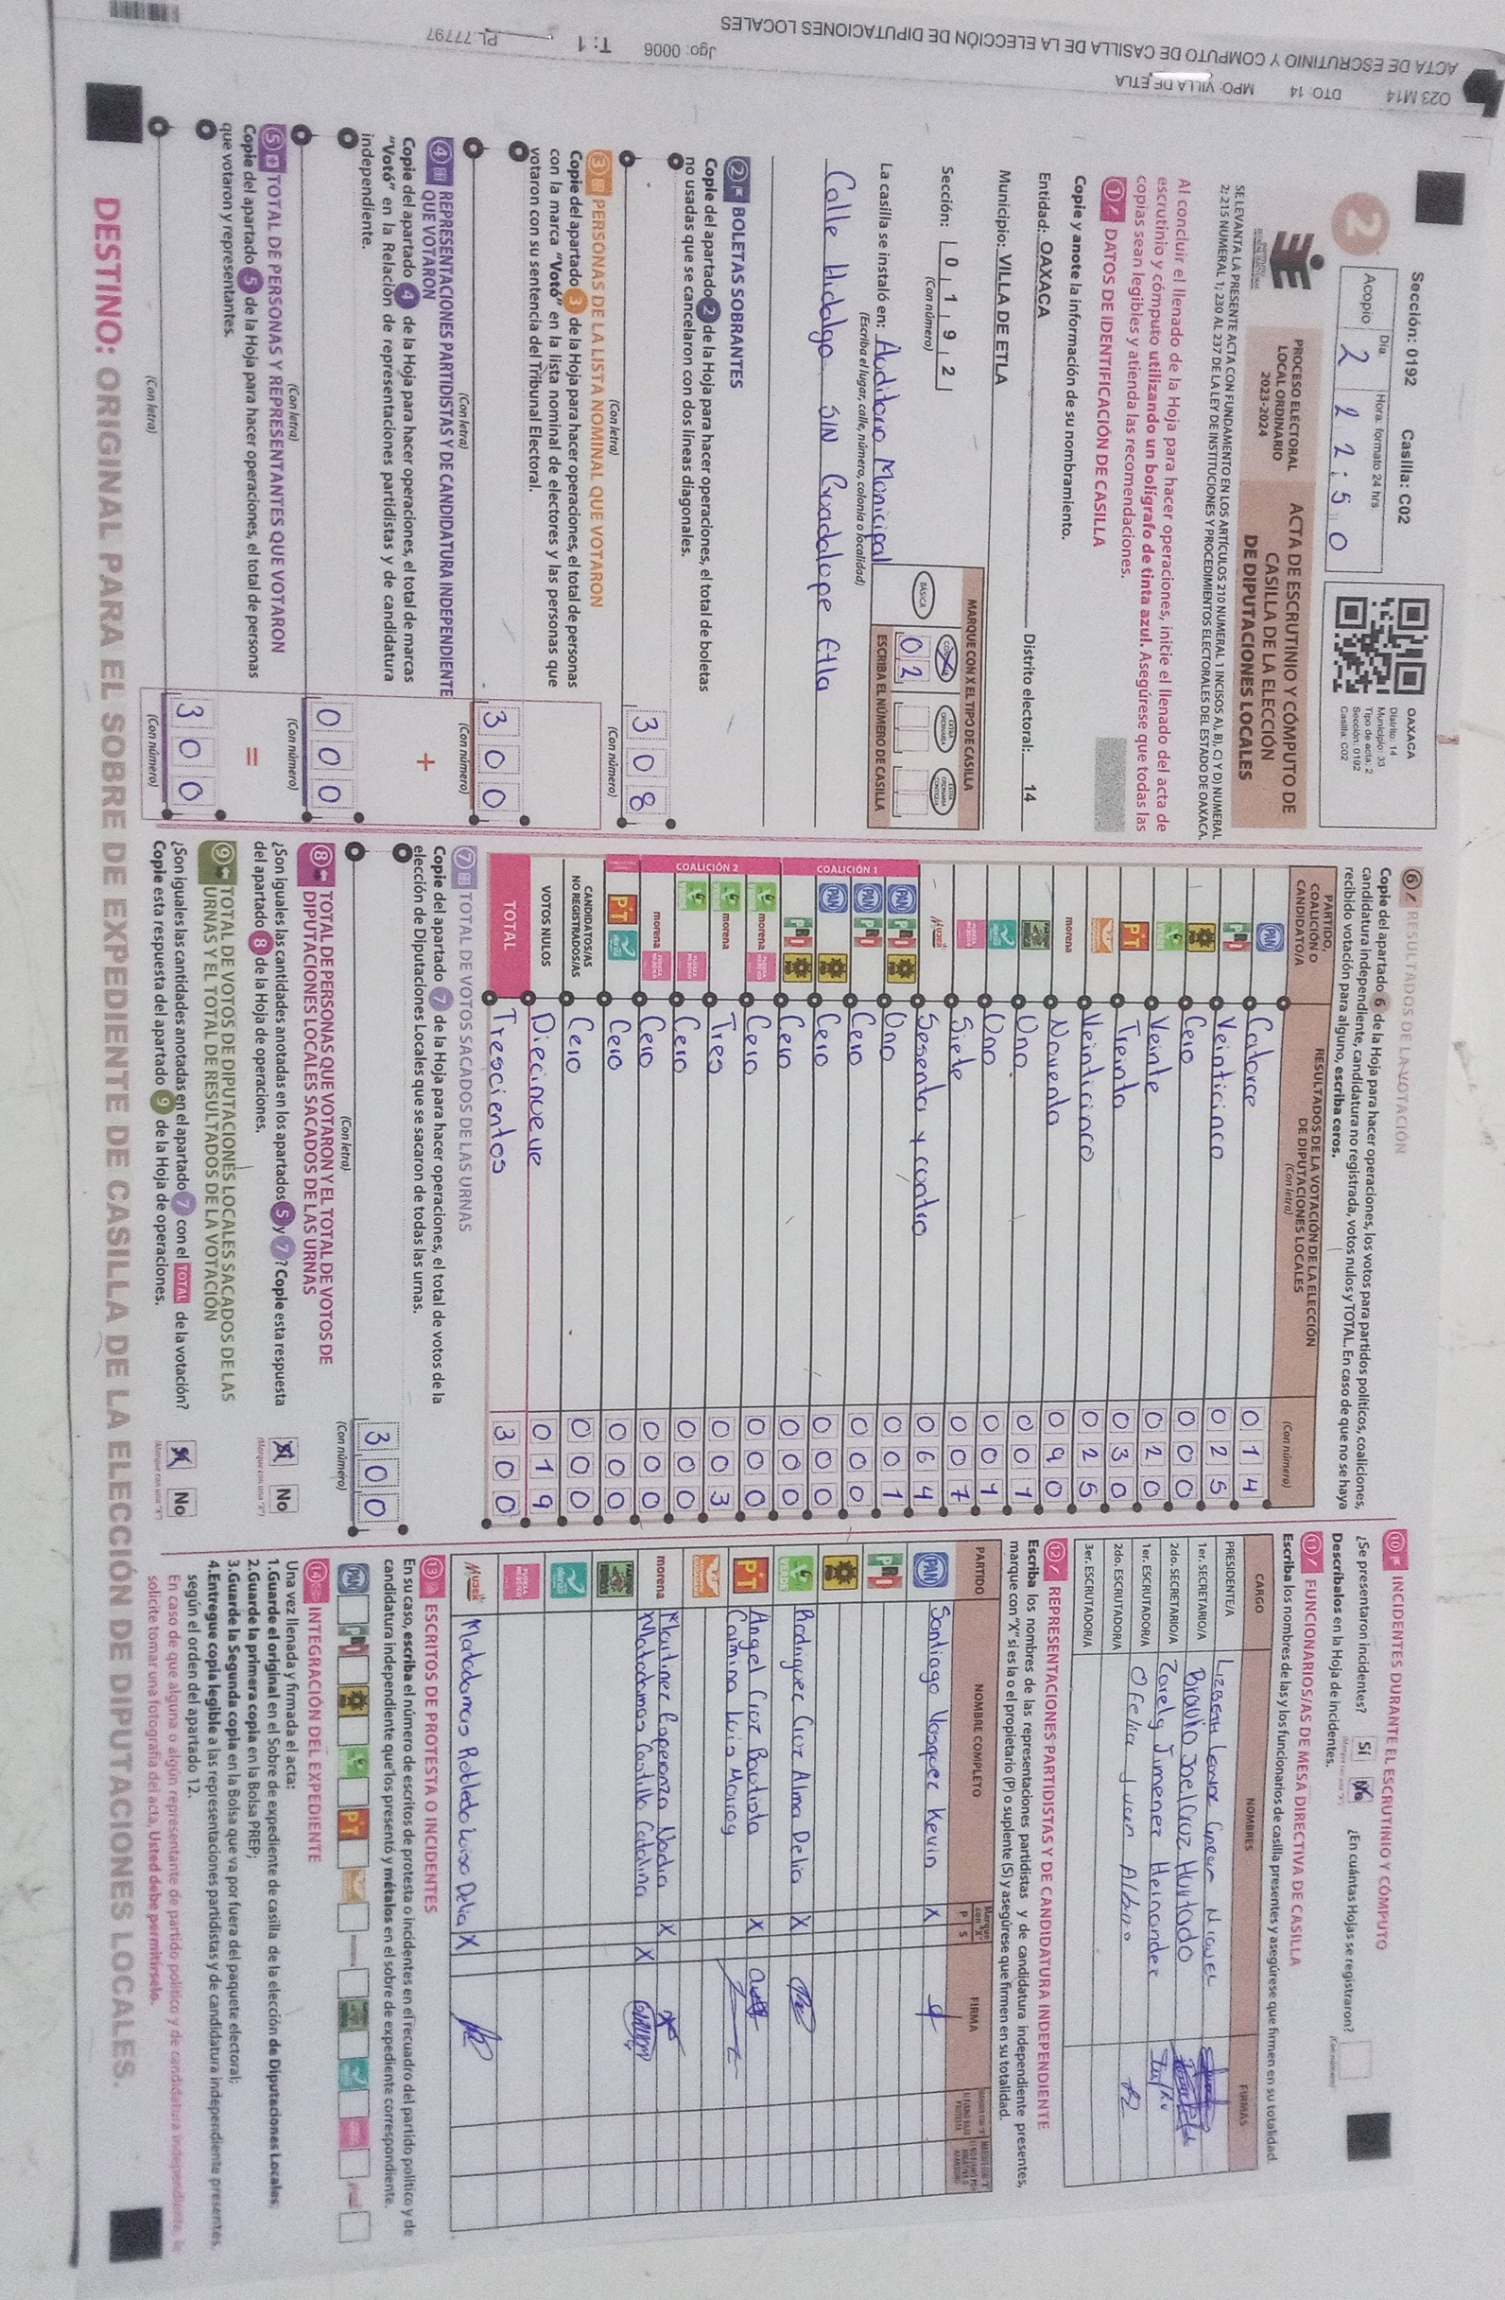 O23 M14 DTO: 14 MPO: VILLA DE ETLA
ACTA DE ESCRUTINIO Y COMPUTO DE CASILLA DE LA ELECCIÓN DE DIPUTACIONES LOCALES
Jgo: 0006 T: 1 PL 77797
Sección: 0192 Casilla: C02
2
Día Hora: formato 24 hrs
Acopio 2 22:50
OAXACA
Distrito: 14
Municipio: 33
Tipo de acta: 2
Sección: 0192
Casilla: C02
PROCESO ELECTORAL
LOCAL ORDINARIO
2023-2024
ACTA DE ESCRUTINIO Y CÓMPUTO DE
CASILLA DE LA ELECCIÓN
DE DIPUTACIONES LOCALES
SE LEVANTA LA PRESENTE ACTA CON FUNDAMENTO EN LOS ARTÍCULOS 210 NUMERAL 1 INCISOS A), B), C) Y D) NUMERAL
2; 215 NUMERAL 1; 230 AL 237 DE LA LEY DE INSTITUCIONES Y PROCEDIMIENTOS ELECTORALES DEL ESTADO DE OAXACA.
Al concluir el llenado de la Hoja para hacer operaciones, inicie el llenado del acta de
escrutinio y cómputo utilizando un bolígrafo de tinta azul. Asegúrese que todas las
copias sean legibles y atienda las recomendaciones.
1 DATOS DE IDENTIFICACIÓN DE CASILLA
Copie y anote la información de su nombramiento.
Entidad: OAXACA Distrito electoral: 14
Municipio: VILLA DE ETLA
Sección: 0192
(Con número)
MARQUE CON X EL TIPO DE CASILLA
BÁSICA
ESCRIBA EL NÚMERO DE CASILLA
02
La casilla se instaló en: Auditorio Municipal
(Escriba el lugar, calle, número, colonia o localidad)
Calle Hidalgo SIN Guadalupe Etla
2 BOLETAS SOBRANTES
Copie del apartado 2 de la Hoja para hacer operaciones, el total de boletas
no usadas que se cancelaron con dos líneas diagonales.
308
(Con letra) (Con número)
3 PERSONAS DE LA LISTA NOMINAL QUE VOTARON
Copie del apartado 3 de la Hoja para hacer operaciones, el total de personas
con la marca "Votó" en la lista nominal de electores y las personas que
votaron con su sentencia del Tribunal Electoral.
300
(Con letra) (Con número)
4 REPRESENTACIONES PARTIDISTAS Y DE CANDIDATURA INDEPENDIENTE
QUE VOTARON
+
Copie del apartado 4 de la Hoja para hacer operaciones, el total de marcas
"Votó" en la Relación de representaciones partidistas y de candidatura
independiente.
000
(Con letra) (Con número)
5 TOTAL DE PERSONAS Y REPRESENTANTES QUE VOTARON
=
Copie del apartado 5 de la Hoja para hacer operaciones, el total de personas
que votaron y representantes.
300
(Con letra) (Con número)
6 RESULTADOS DE LA VOTACIÓN
Copie del apartado 6 de la Hoja para hacer operaciones, los votos para partidos políticos, coaliciones,
candidatura independiente, candidatura no registrada, votos nulos y TOTAL. En caso de que no se haya
recibido votación para alguno, escriba ceros.
PARTIDO,
COALICIÓN O
CANDIDATO/A
RESULTADOS DE LA VOTACIÓN DE LA ELECCIÓN
DE DIPUTACIONES LOCALES
(Con letra) (Con número)
PAN Catorce 014
PRI Veinticinco 025
PRD Cero 000
VERDE Veinte 020
PT Treinta 030
Veinticinco 025
morena Noventa 090
Uno 001
Uno 001
Siete 007
Mujer Sesenta y cuatro 064
COALICIÓN 1
PAN PRI PRD Uno 001
PAN PRI Cero 000
PAN PRD Cero 000
PRI PRD Cero 000
COALICIÓN 2
VERDE morena Cero 000
VERDE morena Tres 003
VERDE Cero 000
morena Cero 000
PT Cero 000
CANDIDATOS/AS
NO REGISTRADOS/AS Cero 000
VOTOS NULOS Diecinueve 019
TOTAL Trescientos 300
7 TOTAL DE VOTOS SACADOS DE LAS URNAS
Copie del apartado 7 de la Hoja para hacer operaciones, el total de votos de la
elección de Diputaciones Locales que se sacaron de todas las urnas.
300
(Con letra) (Con número)
8 TOTAL DE PERSONAS QUE VOTARON Y EL TOTAL DE VOTOS DE
DIPUTACIONES LOCALES SACADOS DE LAS URNAS
¿Son iguales las cantidades anotadas en los apartados 5 y 7? Copie esta respuesta
del apartado 8 de la Hoja de operaciones.
Sí No
(Marque con una "X")
9 TOTAL DE VOTOS DE DIPUTACIONES LOCALES SACADOS DE LAS
URNAS Y EL TOTAL DE RESULTADOS DE LA VOTACIÓN
¿Son iguales las cantidades anotadas en el apartado 7 con el TOTAL de la votación?
Copie esta respuesta del apartado 9 de la Hoja de operaciones.
Sí No
(Marque con una "X")
10 INCIDENTES DURANTE EL ESCRUTINIO Y CÓMPUTO
¿Se presentaron incidentes? Sí No ¿En cuántas Hojas se registraron?
(Con número)
Descríbalos en la Hoja de incidentes.
11 FUNCIONARIOS/AS DE MESA DIRECTIVA DE CASILLA
Escriba los nombres de las y los funcionarios de casilla presentes y asegúrese que firmen en su totalidad.
CARGO NOMBRES FIRMAS
PRESIDENTE/A
1er. SECRETARIO/A Braulio Joel Cruz Hurtado
2do. SECRETARIO/A Zarely Jimenez Hernandez
1er. ESCRUTADOR/A
2do. ESCRUTADOR/A
3er. ESCRUTADOR/A
12 REPRESENTACIONES PARTIDISTAS Y DE CANDIDATURA INDEPENDIENTE
Escriba los nombres de las representaciones partidistas y de candidatura independiente presentes,
marque con "X" si es la o el propietario (P) o suplente (S) y asegúrese que firmen en su totalidad.
PARTIDO NOMBRE COMPLETO P S FIRMA
PAN Santiago Vasquez Kevin X
PRI
PRD
VERDE Rodriguez Cruz Alma Delia X
PT Angel Cruz Bautista X
Carmina Luis Monroy
morena Martinez Esperanza Nadia X
Matadamas Castillo Catalina X
Mujer Matadamas Robledo Luisa Delia X
13 ESCRITOS DE PROTESTA O INCIDENTES
En su caso, escriba el número de escritos de protesta o incidentes en el recuadro del partido político y de
candidatura independiente que los presentó y métalos en el sobre de expediente correspondiente.
PAN PRI PRD VERDE PT
14 INTEGRACIÓN DEL EXPEDIENTE
Una vez llenada y firmada el acta:
1.Guarde el original en el Sobre de expediente de casilla de la elección de Diputaciones Locales;
2.Guarde la primera copia en la Bolsa PREP;
3.Guarde la Segunda copia en la Bolsa que va por fuera del paquete electoral;
4.Entregue copia legible a las representaciones partidistas y de candidatura independiente presentes,
según el orden del apartado 12.
En caso de que alguna o algún representante de partido político y de candidatura independiente, le
solicite tomar una fotografía del acta, Usted debe permitírselo.
DESTINO: ORIGINAL PARA EL SOBRE DE EXPEDIENTE DE CASILLA DE LA ELECCIÓN DE DIPUTACIONES LOCALES.